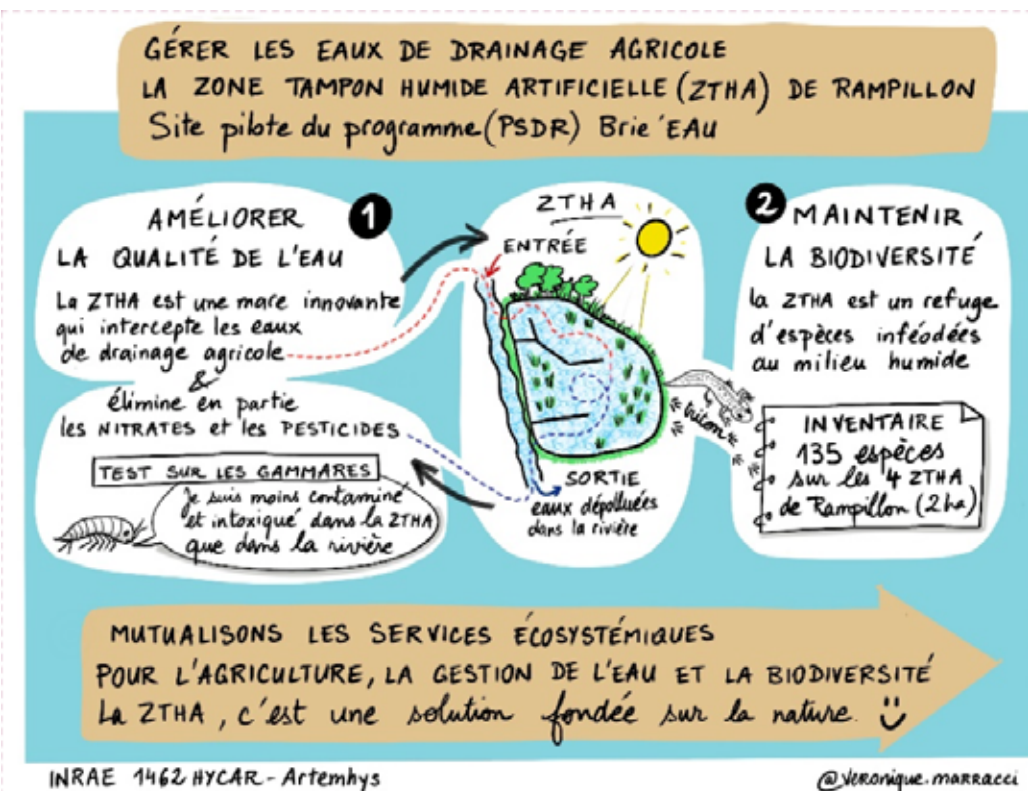 GÉRER LES EAUX DE DRAINAGE AGRICOLE
LA ZONE TAMPON HUMIDE ARTIFICIELLE (ZTHA) DE RAMPILLON
Site pilote du programme (PSDR) Brie'EAU
1
AMÉLIORER
LA QUALITÉ DE L'EAU
La ZTHA est une mare innovante
qui intercepte les eaux
de drainage agricole
&
élimine en partie
les NITRATES et les PESTICIDES
TEST SUR LES GAMMARES
Je suis moins contaminé
et intoxiqué dans la ZTHA
que dans la rivière
ZTHA
ENTRÉE
SORTIE
eaux dépolluées
dans la rivière
2
MAINTENIR
LA BIODIVERSITÉ
la ZTHA est un refuge
d'espèces inféodées
au milieu humide
triton
INVENTAIRE
135 espèces
sur les 4 ZTHA
de Rampillon (2ha)
MUTUALISONS LES SERVICES ÉCOSYSTÉMIQUES
POUR L'AGRICULTURE, LA GESTION DE L'EAU ET LA BIODIVERSITÉ
La ZTHA, c'est une solution fondée sur la nature
INRAE 1462 HYCAR - Artemhys
@veronique.marracci